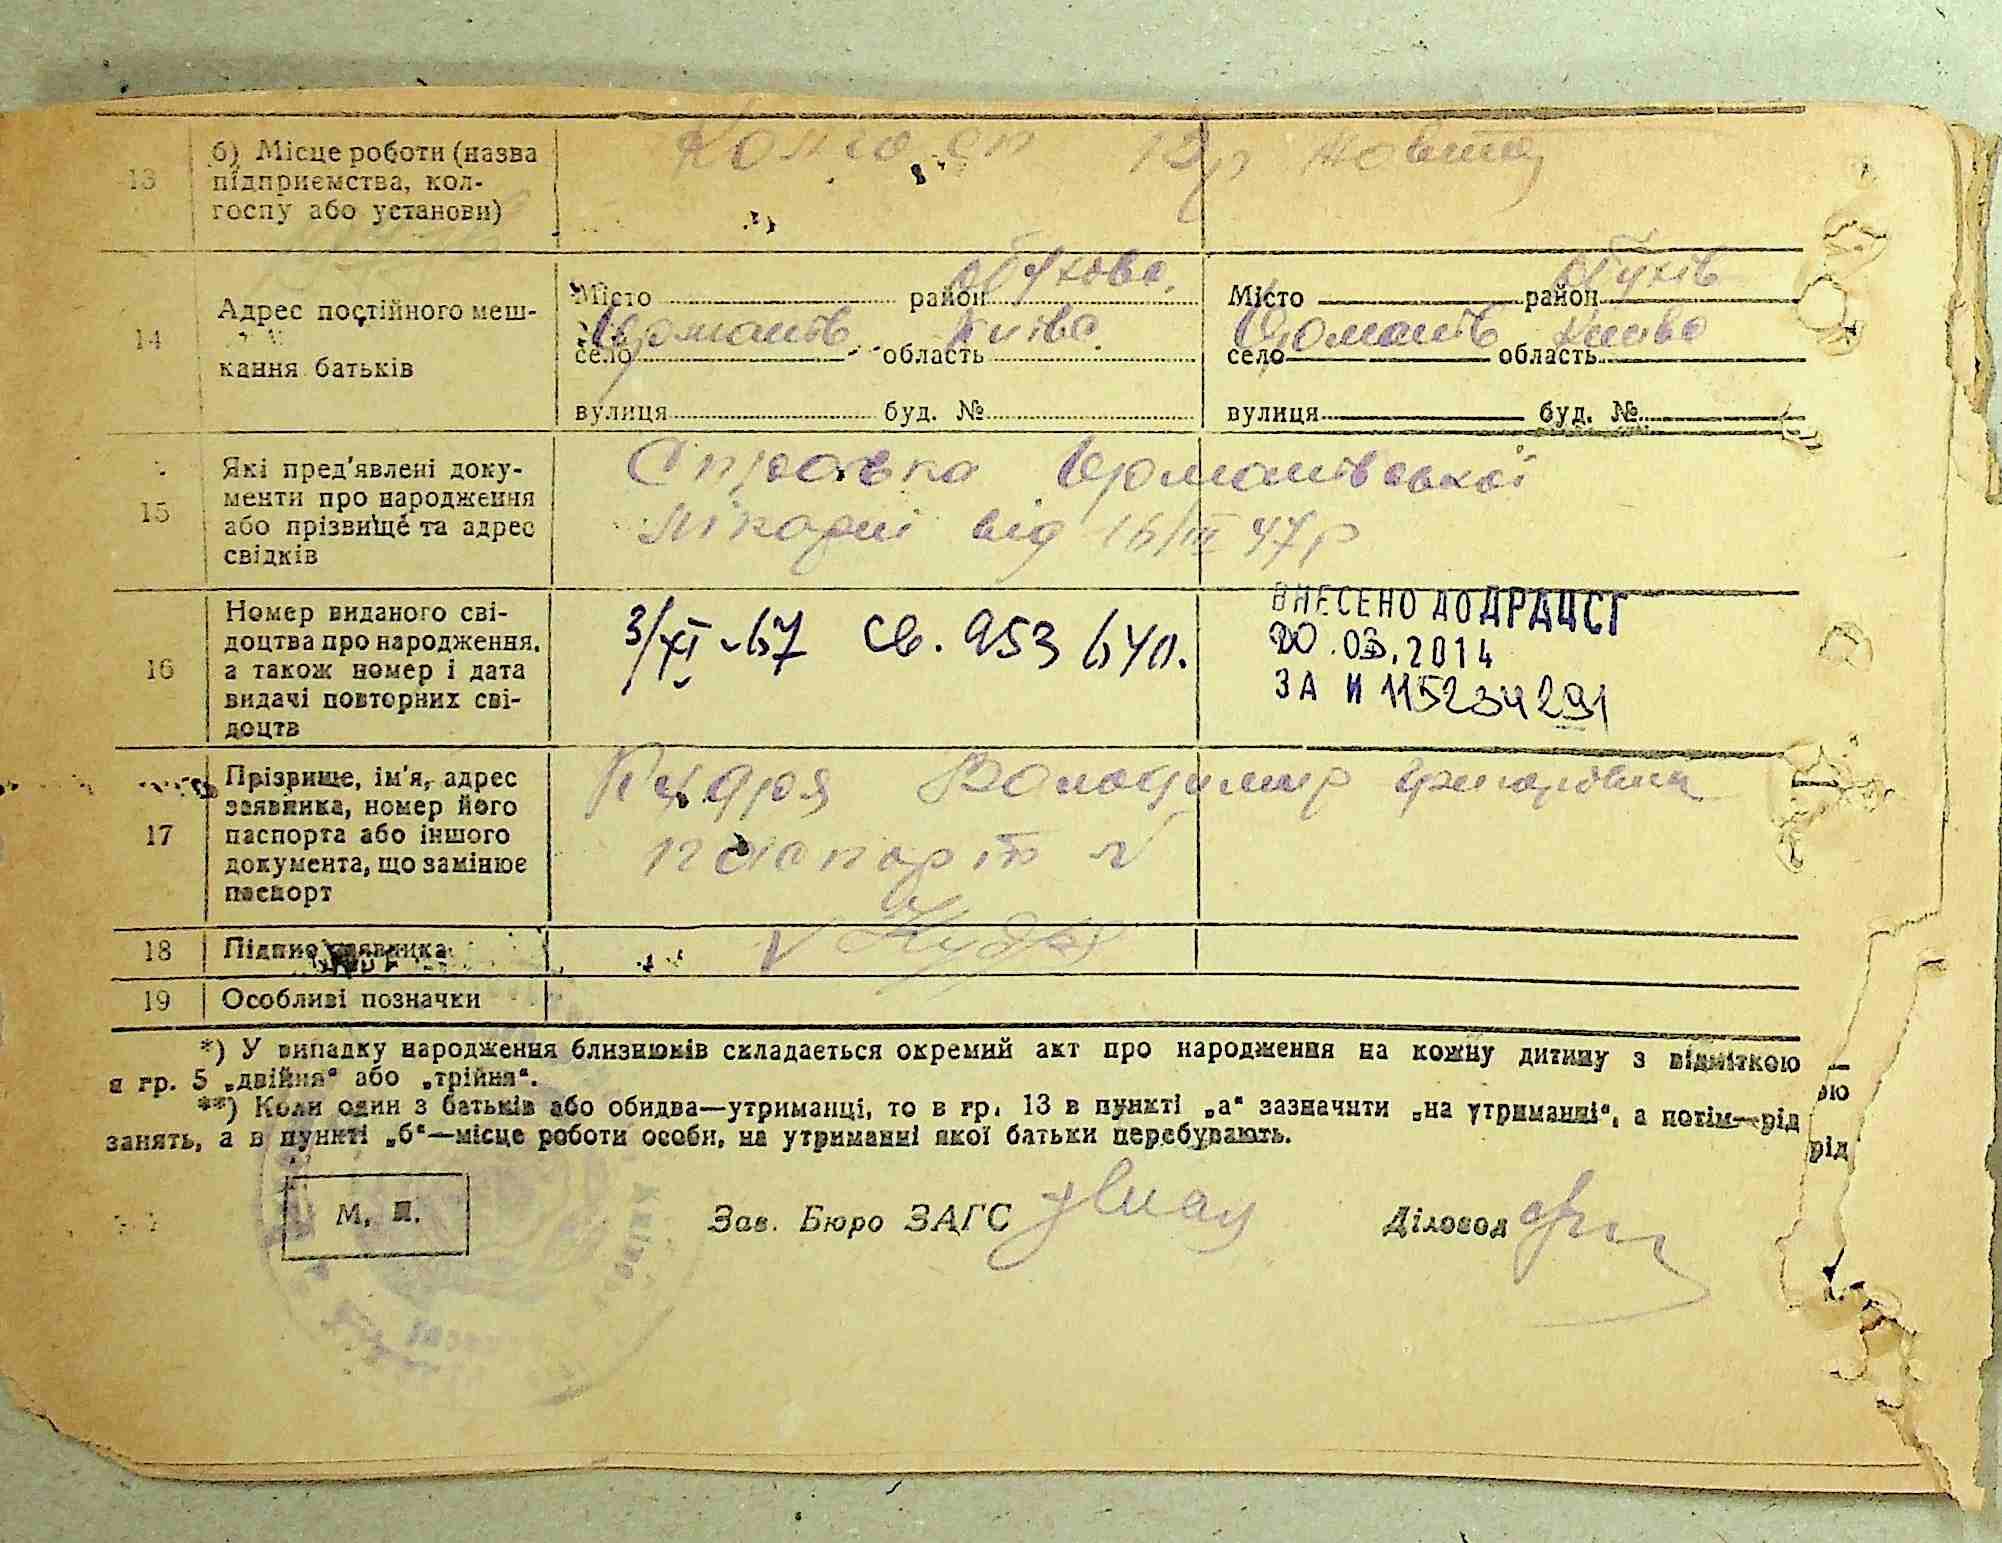 13 б) Місце роботи (назва
підприємства, кол-
госпу або установи)
Колгосп 12 р Жовтня
14 Адрес постійного меш-
кання батьків
Місто район Обухово.
село Германів область Київо.
вулиця буд. №
Місто район Обухів
село Германів область Київо
вулиця буд. №
15 Які пред'явлені доку-
менти про народження
або прізвище та адрес
свідків
Справка Германівської
лікарні від 16/III 47 р
16 Номер виданого сві-
доцтва про народження,
а також номер і дата
видачі повторних сві-
доцтв
3/XI-67 св. 953 640.
ВНЕСЕНО ДО ДРАЦСГ
20.03.2014
ЗА N 115234291
17 Прізвище, ім'я, адрес
заявника, номер його
паспорта або іншого
документа, що замінює
паспорт
Кудря Володимир Григорович
паспорт
18 Підпис заявника
19 Особливі позначки
*) У випадку народження близнюків складається окремий акт про народження на кожну дитину з відміткою
в гр. 5 „двійня“ або „трійня“.
ою
**) Коли один з батьків або обидва—утриманці, то в гр. 13 в пункті „а“ зазначити „на утриманні“, а потім—рід
занять, а в пункті „б“—місце роботи особи, на утриманні якої батьки перебувають.
рід
М. П.
Зав. Бюро ЗАГС
Діловод